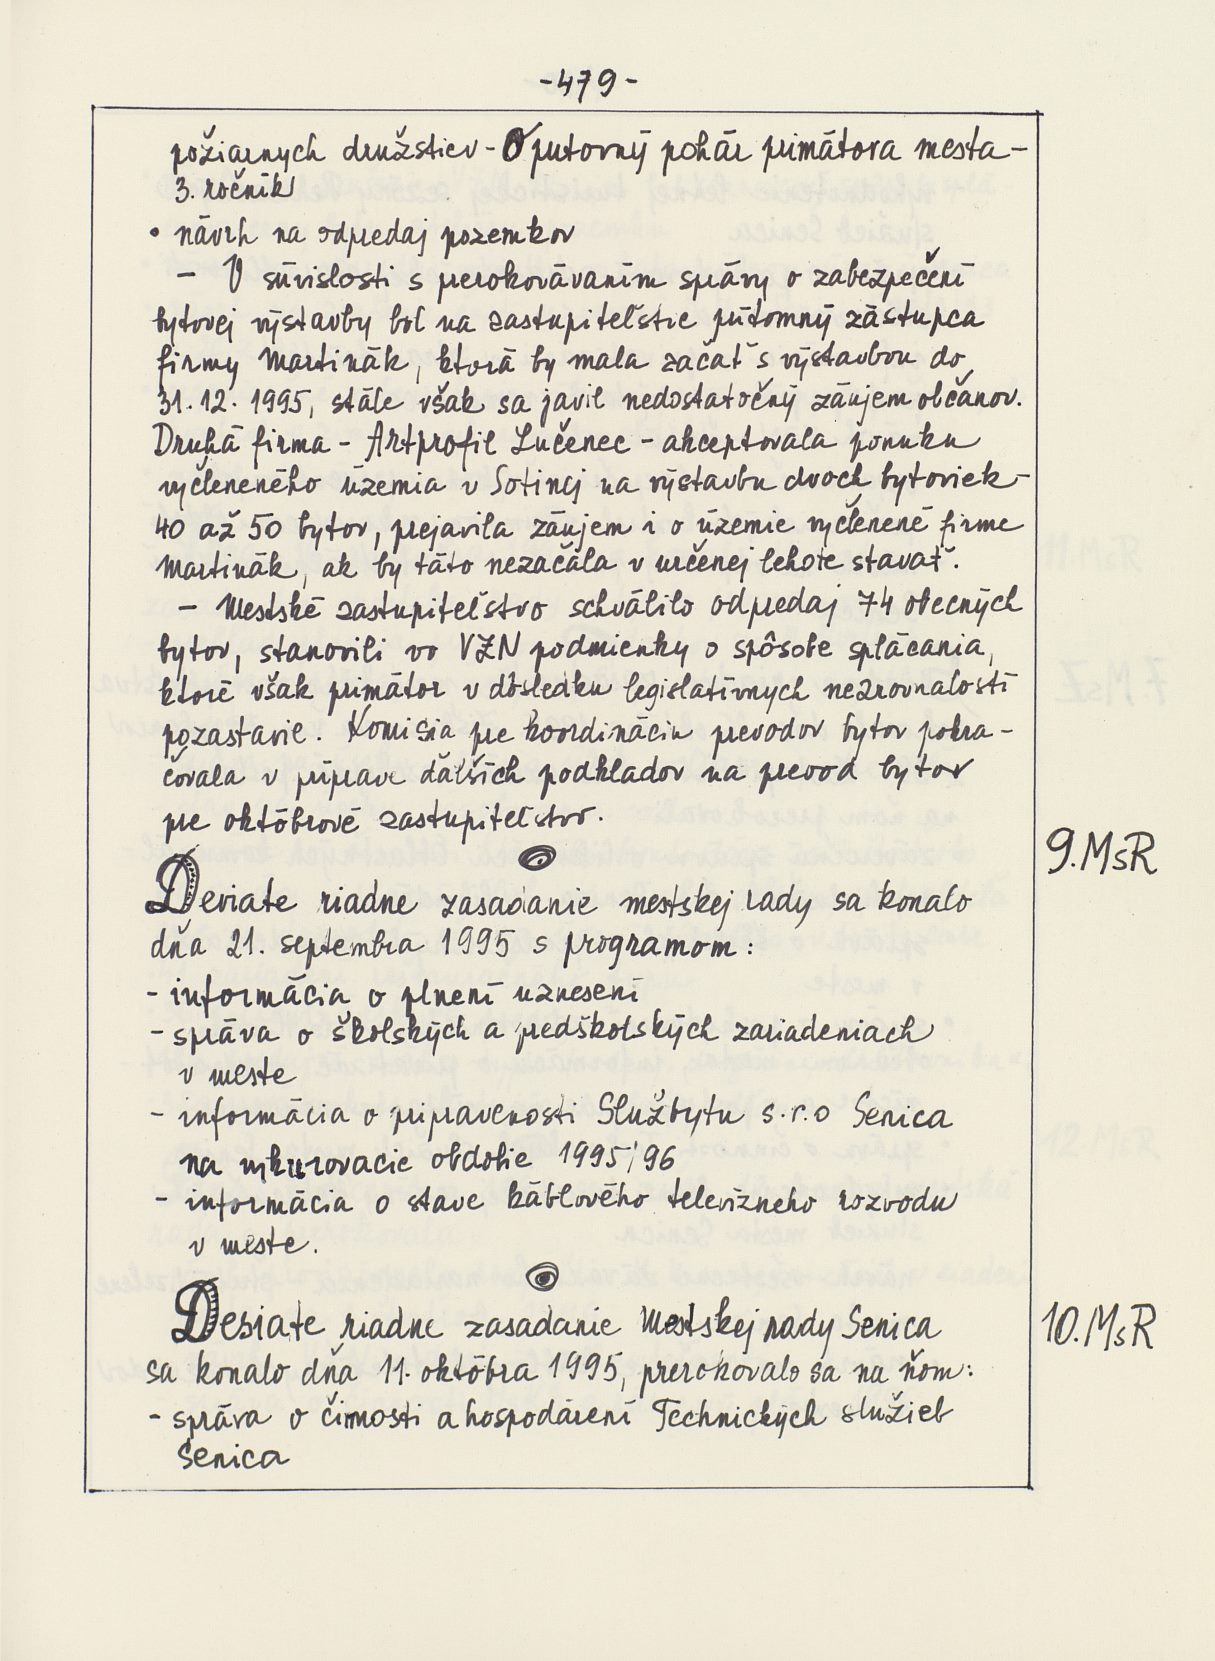 -479-
požiarnych družstiev - O putovný pohár primátora mesta -
3. ročník
• návrh na odpredaj pozemkov
- V súvislosti s prerokovávaním správy o zabezpečení
bytovej výstavby bol na zastupiteľstve prítomný zástupca
firmy Martinák, ktorá by mala začať s výstavbou do
31.12. 1995, stále však sa javil nedostatočný záujem občanov.
Druhá firma - Artprofil Lučenec - akceptovala ponuku
vyčleneného územia v Sotinej na výstavbu dvoch bytoviek -
40 až 50 bytov, prejavila záujem i o územie vyčlenené firme
Martinák, ak by táto nezačala v určenej lehote stavať.
- Mestské zastupiteľstvo schválilo odpredaj 74 obecných
bytov, stanovili vo VZN podmienky o spôsobe splácania,
ktoré však primátor v dôsledku legislatívnych nezrovnalostí
pozastavil. Komisia pre koordináciu prevodov bytov pokra-
čovala v príprave ďalších podkladov na prevod bytov
pre októbrové zastupiteľstvo.
9.MsR
Deviate riadne zasadanie mestskej rady sa konalo
dňa 21. septembra 1995 s programom:
- informácia o plnení uznesení
- správa o školských a predškolských zariadeniach
v meste
- informácia o pripravenosti Službytu s.r.o Senica
na vykurovacie obdobie 1995/96
- informácia o stave káblového televízneho rozvodu
v meste.
10.MsR
Desiate riadne zasadanie Mestskej rady Senica
sa konalo dňa 11. októbra 1995, prerokovalo sa na ňom:
- správa o činnosti a hospodárení Technických služieb
Senica